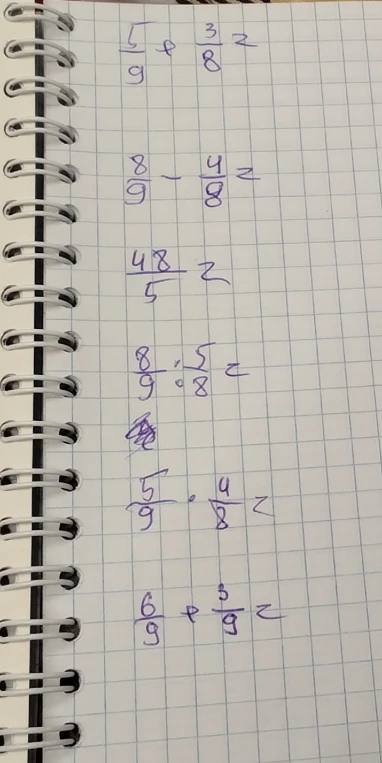 5/9 + 3/8 =
8/9 - 4/8 =
48/5 =
8/9 : 5/8 =
5/9 · 4/8 =
6/9 + 3/9 =